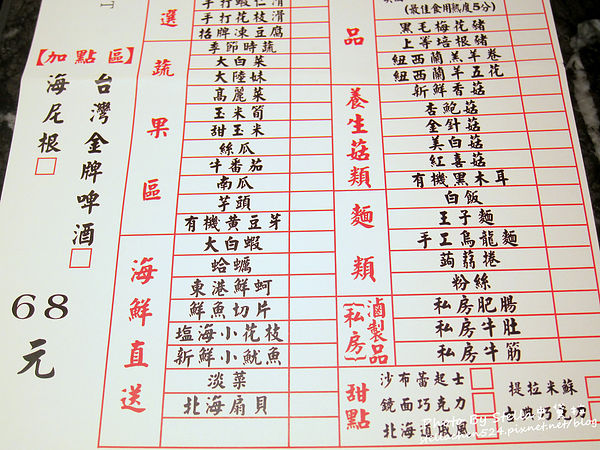 【加點區】
台灣金牌啤酒□
海尼根□
68元
選
手打蝦仁滑
手打花枝滑
招牌凍豆腐
蔬果區
季節時蔬
大白菜
大陸妹
高麗菜
玉米筍
甜玉米
絲瓜
牛番茄
南瓜
芋頭
有機黃豆芽
海鮮直送
大白蝦
蛤蠣
東港鮮蚵
鮮魚切片
塩海小花枝
新鮮小魷魚
淡菜
北海扇貝
品
(最佳食用熟度5分)
黑毛梅花豬
上等培根豬
紐西蘭羔羊卷
紐西蘭羊五花
養生菇類
新鮮香菇
杏鮑菇
金針菇
美白菇
紅喜菇
有機黑木耳
麵類
白飯
王子麵
手工烏龍麵
蒟蒻捲
粉絲
滷製品(私房)
私房肥腸
私房牛肚
私房牛筋
甜點
沙布蕾起士
鏡面巧克力
北海道戚風
提拉米蘇
古典巧克力